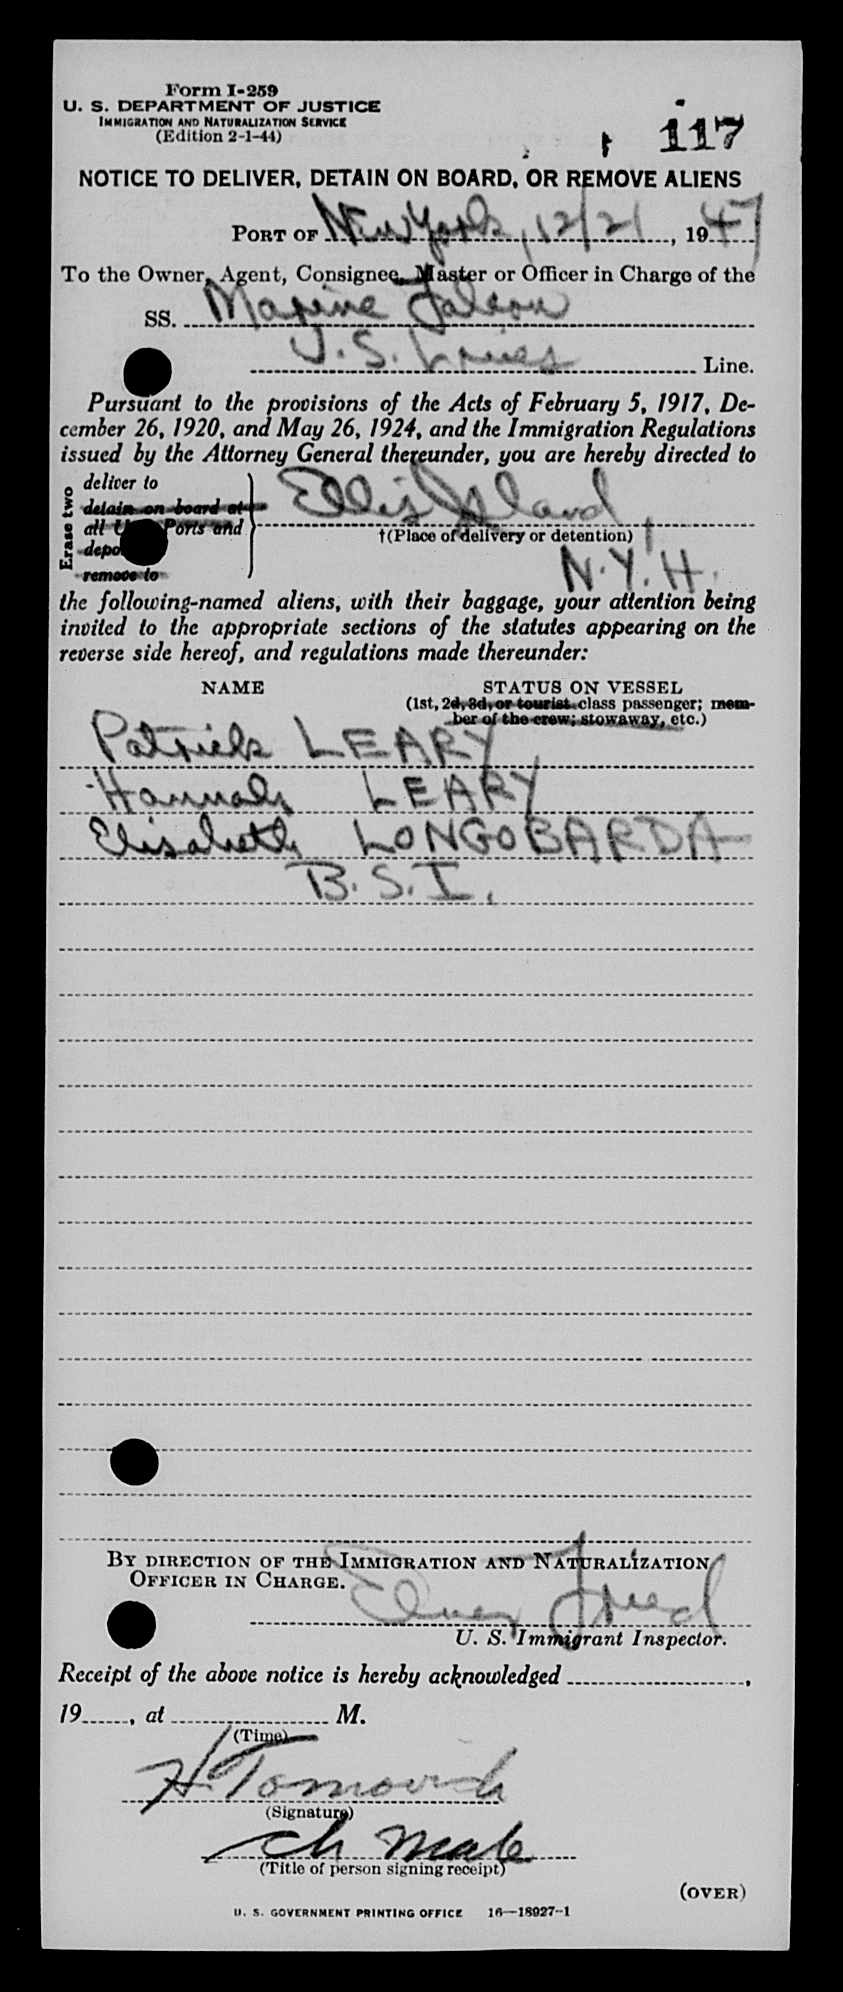 Form I-259
U. S. DEPARTMENT OF JUSTICE
IMMIGRATION AND NATURALIZATION SERVICE
(Edition 2-1-44)
117
NOTICE TO DELIVER, DETAIN ON BOARD, OR REMOVE ALIENS
PORT OF New York, 12/21, 1947
To the Owner, Agent, Consignee, Master or Officer in Charge of the
SS. Marine Falcon
U.S. Lines Line.
Pursuant to the provisions of the Acts of February 5, 1917, De-
cember 26, 1920, and May 26, 1924, and the Immigration Regulations
issued by the Attorney General thereunder, you are hereby directed to
Erase two
deliver to
detain on board at
all U Ports and
depo
remove to
Ellis Island
†(Place of delivery or detention)
N.Y.H.
the following-named aliens, with their baggage, your attention being
invited to the appropriate sections of the statutes appearing on the
reverse side hereof, and regulations made thereunder:
NAME STATUS ON VESSEL
(1st, 2d, 3d, or tourist class passenger; mem-
ber of the crew; stowaway, etc.)
Patrick LEARY
Hannah LEARY
Elisabeth LONGOBARDA
B.S.I.
BY DIRECTION OF THE IMMIGRATION AND NATURALIZATION
OFFICER IN CHARGE.
U. S. Immigrant Inspector.
Receipt of the above notice is hereby acknowledged ,
19 , at M.
(Time)
H. Tomovich
(Signature)
Ch Mate
(Title of person signing receipt)
(OVER)
U. S. GOVERNMENT PRINTING OFFICE 16—18927-1